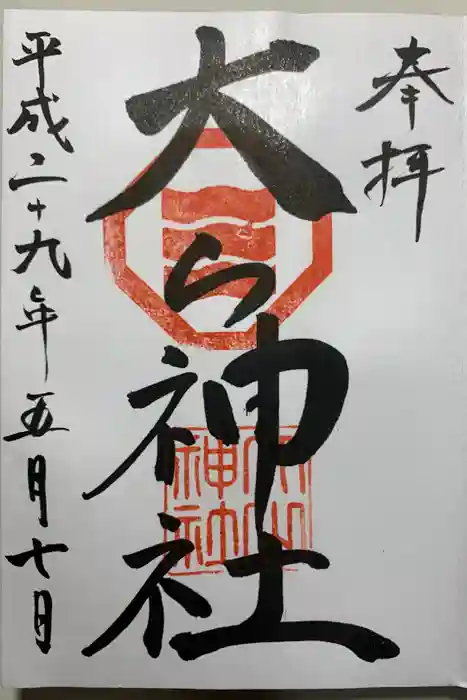 奉拝
大山神社
平成二十九年五月七日
大山
神社